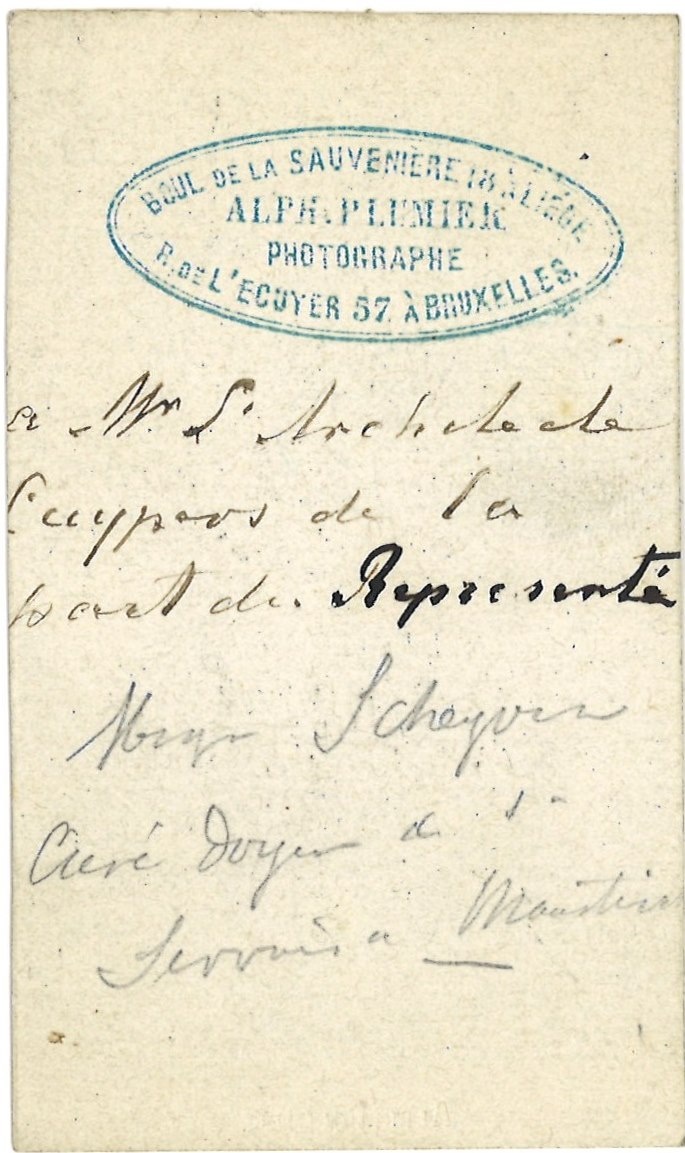 BOUL. DE LA SAUVENIÈRE 18 À LIÉGE
ALPH. PLUMIER
PHOTOGRAPHE
R. DE L'ECUYER 57 À BRUXELLES.
a Mr L'Architecte
Cuypers de la
part du Representé
Mgr Scheyven
Curé Doyen de St
Servais a Maastricht